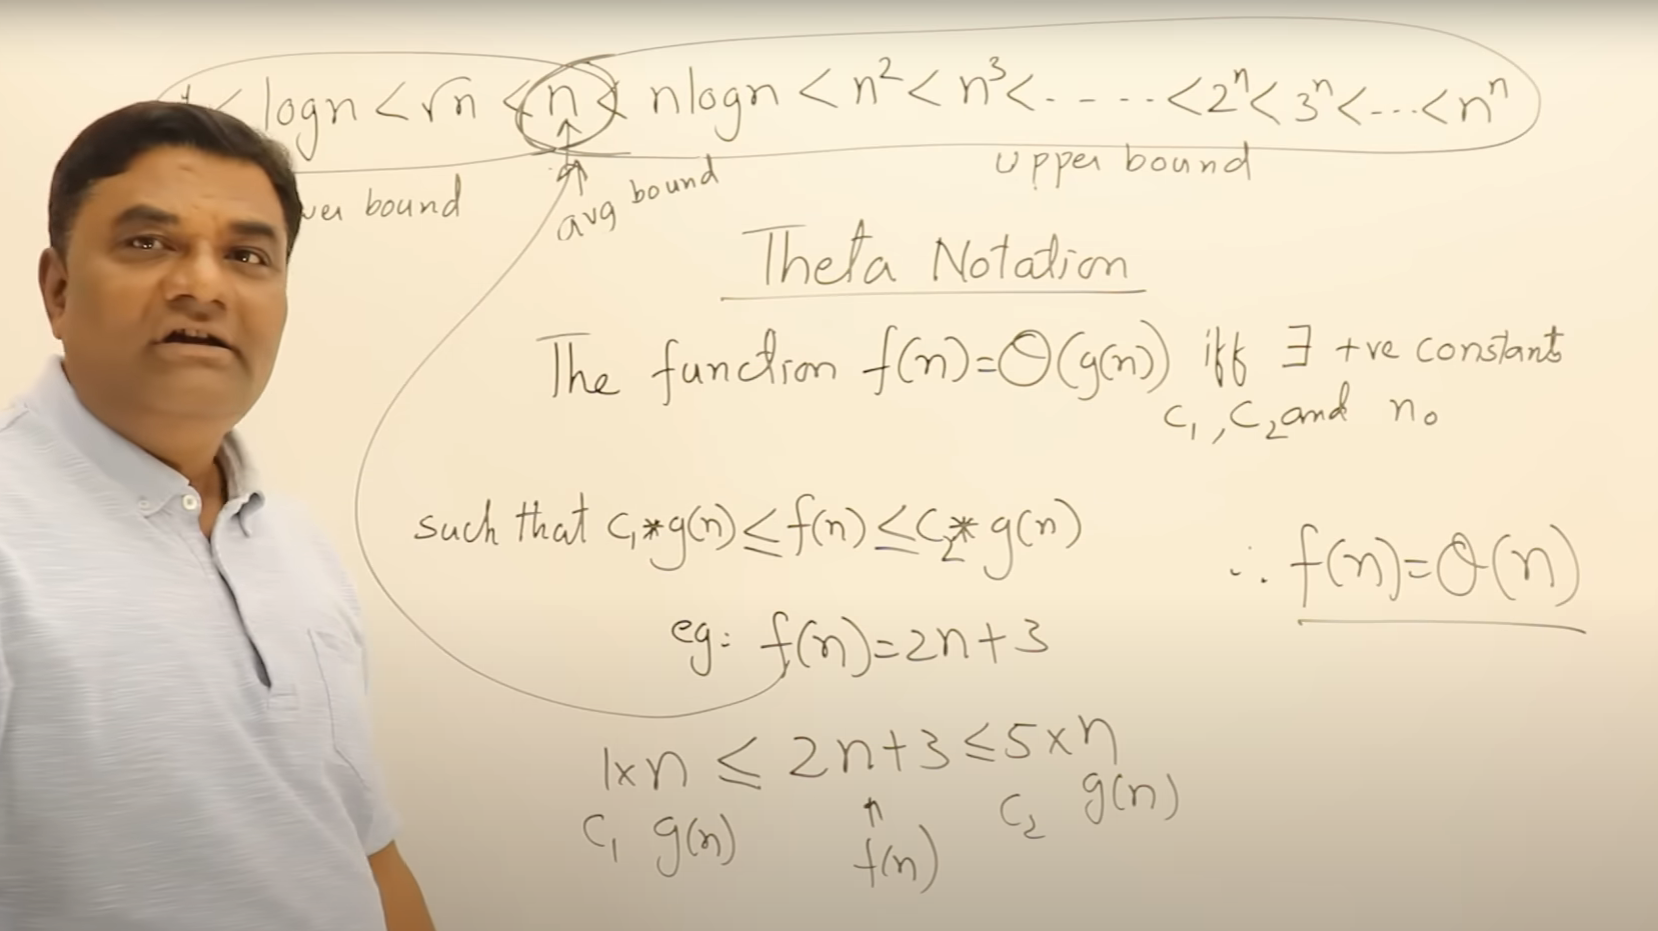 < logn < √n < n < nlogn < n² < n³ < - - - - < 2ⁿ < 3ⁿ < ... < nⁿ
bound avg bound upper bound
Theta Notation
The function f(n)=Θ(g(n)) iff ∃ +ve constants
c₁, c₂ and n₀
such that c₁*g(n) ≤ f(n) ≤ c₂* g(n)
∴ f(n)=Θ(n)
eg: f(n)=2n+3
1×n ≤ 2n+3 ≤ 5×n
c₁ g(n) f(n) c₂ g(n)